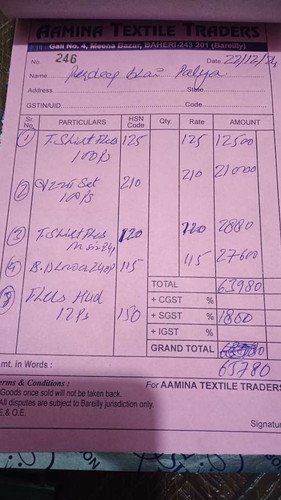 AAMINA TEXTILE TRADERS
Gali No. 4, Meena Bazar, BAHERI-243 201 (Bareilly)
No. 246 Date 22/12/24
Name
Address State
GSTIN/UID. Code
Sr. No. PARTICULARS HSN Code Qty Rate AMOUNT
1 T.Shirt 125 125 12500
100 Ps
2 Set 210 210 21000
100 Ps
3 T.Shirt 120 120 2880
4 115 115 27600
TOTAL 63980
5 Hud 150
12 Ps
+ CGST %
+ SGST % 1860
+ IGST %
GRAND TOTAL
65780
mt. in Words :
erms & Conditions : For AAMINA TEXTILE TRADERS
Goods once sold will not be taken back.
All disputes are subject to Bareilly jurisdiction only.
E.& O.E.
Signatur